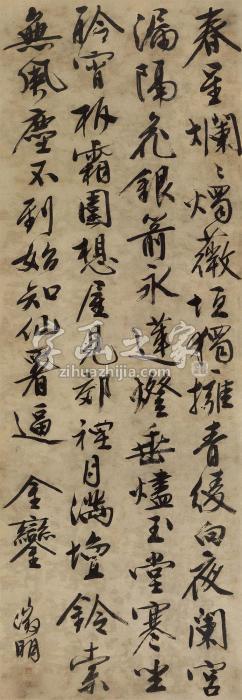 春星爛〻燭薇垣獨擁青綾向夜闌宮
漏隔花銀箭永蓮燈垂燼玉堂寒坐
聆宵柝霜圍想屋見郊禋月滿壇鈴索
無風塵不到始知仙署逼金鑾
徵明
字画之家
zihuazhijia.com